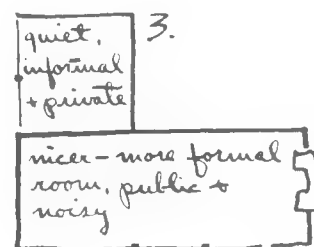 3.
quiet,
informal
+ private
nicer - more formal
room, public +
noisy